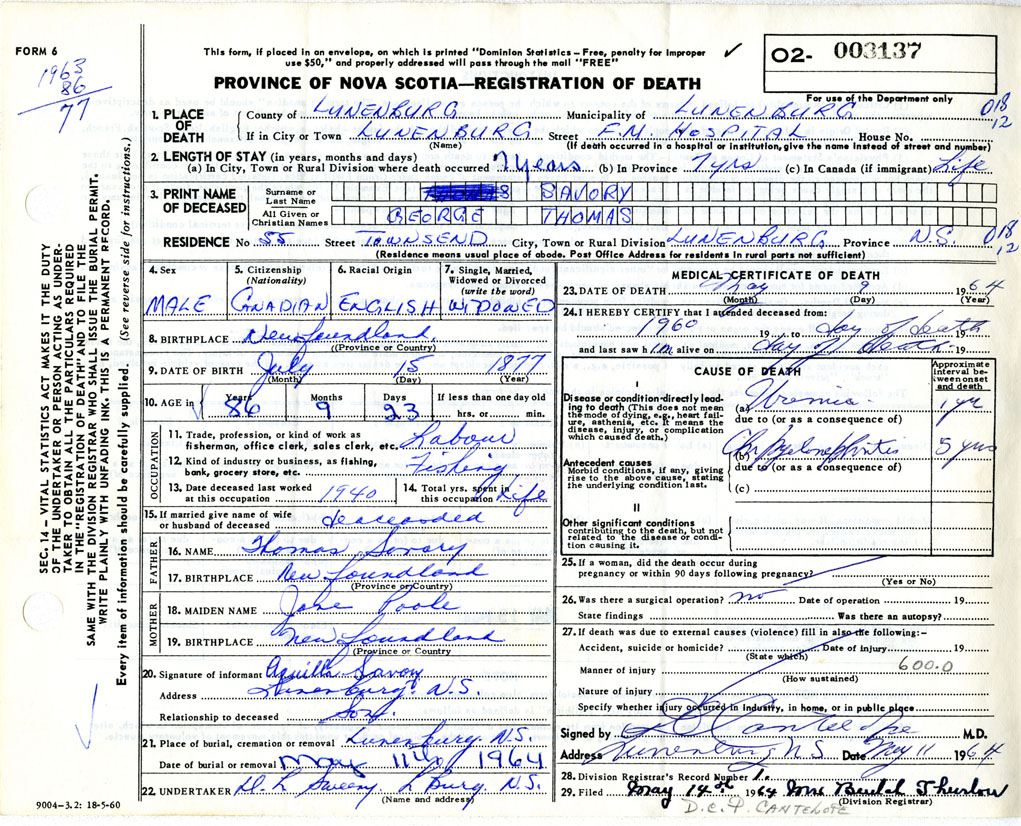 FORM 6
1963
86
77
This form, if placed in an envelope, on which is printed "Dominion Statistics – Free, penalty for improper
use $50," and properly addressed will pass through the mail "FREE"
✓
02- 003137
For use of the Department only
PROVINCE OF NOVA SCOTIA—REGISTRATION OF DEATH
018
12
1. PLACE OF DEATH
County of LUNENBURG Municipality of LUNENBURG
If in City or Town LUNENBURG Street F.M. HOSPITAL House No.
(Name) (If death occurred in a hospital or institution, give the name instead of street and number)
2. LENGTH OF STAY (in years, months and days)
(a) In City, Town or Rural Division where death occurred 7 years (b) In Province 7 yrs (c) In Canada (if immigrant) Life
3. PRINT NAME OF DECEASED
Surname or Last Name SAVORY
All Given or Christian Names GEORGE THOMAS
RESIDENCE No 55 Street TOWNSEND City, Town or Rural Division LUNENBURG Province N.S. 018
12
(Residence means usual place of abode. Post Office Address for residents in rural parts not sufficient)
4. Sex
MALE
5. Citizenship
(Nationality)
CANADIAN
6. Racial Origin
ENGLISH
7. Single, Married,
Widowed or Divorced
(write the word)
WIDOWED
8. BIRTHPLACE Newfoundland
(Province or Country)
9. DATE OF BIRTH July 15 1877
(Month) (Day) (Year)
10. AGE in
Years 86 Months 9 Days 23
If less than one day old
hrs. or min.
OCCUPATION
11. Trade, profession, or kind of work as
fisherman, office clerk, sales clerk, etc. Labour
12. Kind of industry or business, as fishing,
bank, grocery store, etc. Fishing
13. Date deceased last worked
at this occupation 1940
14. Total yrs. spent in
this occupation Life
15. If married give name of wife
or husband of deceased deaceaded
FATHER
16. NAME Thomas Savory
17. BIRTHPLACE New Foundland
(Province or Country)
MOTHER
18. MAIDEN NAME Jane Poole
19. BIRTHPLACE New Foundland
(Province or Country
20. Signature of informant Aquilla Savory
Address Lunenburg. N.S.
Relationship to deceased Son.
21. Place of burial, cremation or removal Lunenburg. N.S.
Date of burial or removal May 11th 1964
22. UNDERTAKER D. L Sweeny L Burg. N.S.
(Name and address)
9004-3.2: 18-5-60
MEDICAL CERTIFICATE OF DEATH
23. DATE OF DEATH May 9 1964
(Month) (Day) (Year)
24. I HEREBY CERTIFY that I attended deceased from:
1960 19 to day of death 19
and last saw him alive on day of death 19
CAUSE OF DEATH
Approximate
interval be-
tween onset
and death
I
Disease or condition directly lead-
ing to death (This does not mean
the mode of dying, e.g., heart fail-
ure, asthenia, etc. It means the
disease, injury, or complication
which caused death.)
(a) Uremia 1 yr
due to (or as a consequence of)
(b) Chr Pyelonephritis 5 yrs
due to (or as a consequence of)
(c)
Antecedent causes
Morbid conditions, if any, giving
rise to the above cause, stating
the underlying condition last.
II
Other significant conditions
contributing to the death, but not
related to the disease or condi-
tion causing it.
25. If a woman, did the death occur during
pregnancy or within 90 days following pregnancy?
(Yes or No)
26. Was there a surgical operation? no Date of operation 19
State findings Was there an autopsy?
27. If death was due to external causes (violence) fill in also the following:–
Accident, suicide or homicide? Date of injury 19
(State which)
Manner of injury 600.0
(How sustained)
Nature of injury
Specify whether injury occurred in industry, in home, or in public place
Signed by D C Cantelope M.D.
Address Lunenburg N S Date May 11 1964
28. Division Registrar's Record Number 1.
29. Filed May 14th 1964 Mrs Beulah Thurlow
(Division Registrar)
D.C.P. CANTELOPE
SEC. 14 – VITAL STATISTICS ACT MAKES IT THE DUTY
OF THE UNDERTAKER OR PERSON ACTING AS UNDER-
TAKER TO OBTAIN ALL THE PARTICULARS REQUIRED
IN THE "REGISTRATION OF DEATH" AND TO FILE THE
SAME WITH THE DIVISION REGISTRAR WHO SHALL ISSUE THE BURIAL PERMIT.
WRITE PLAINLY WITH UNFADING INK. THIS IS A PERMANENT RECORD.
Every item of information should be carefully supplied. (See reverse side for instructions.)